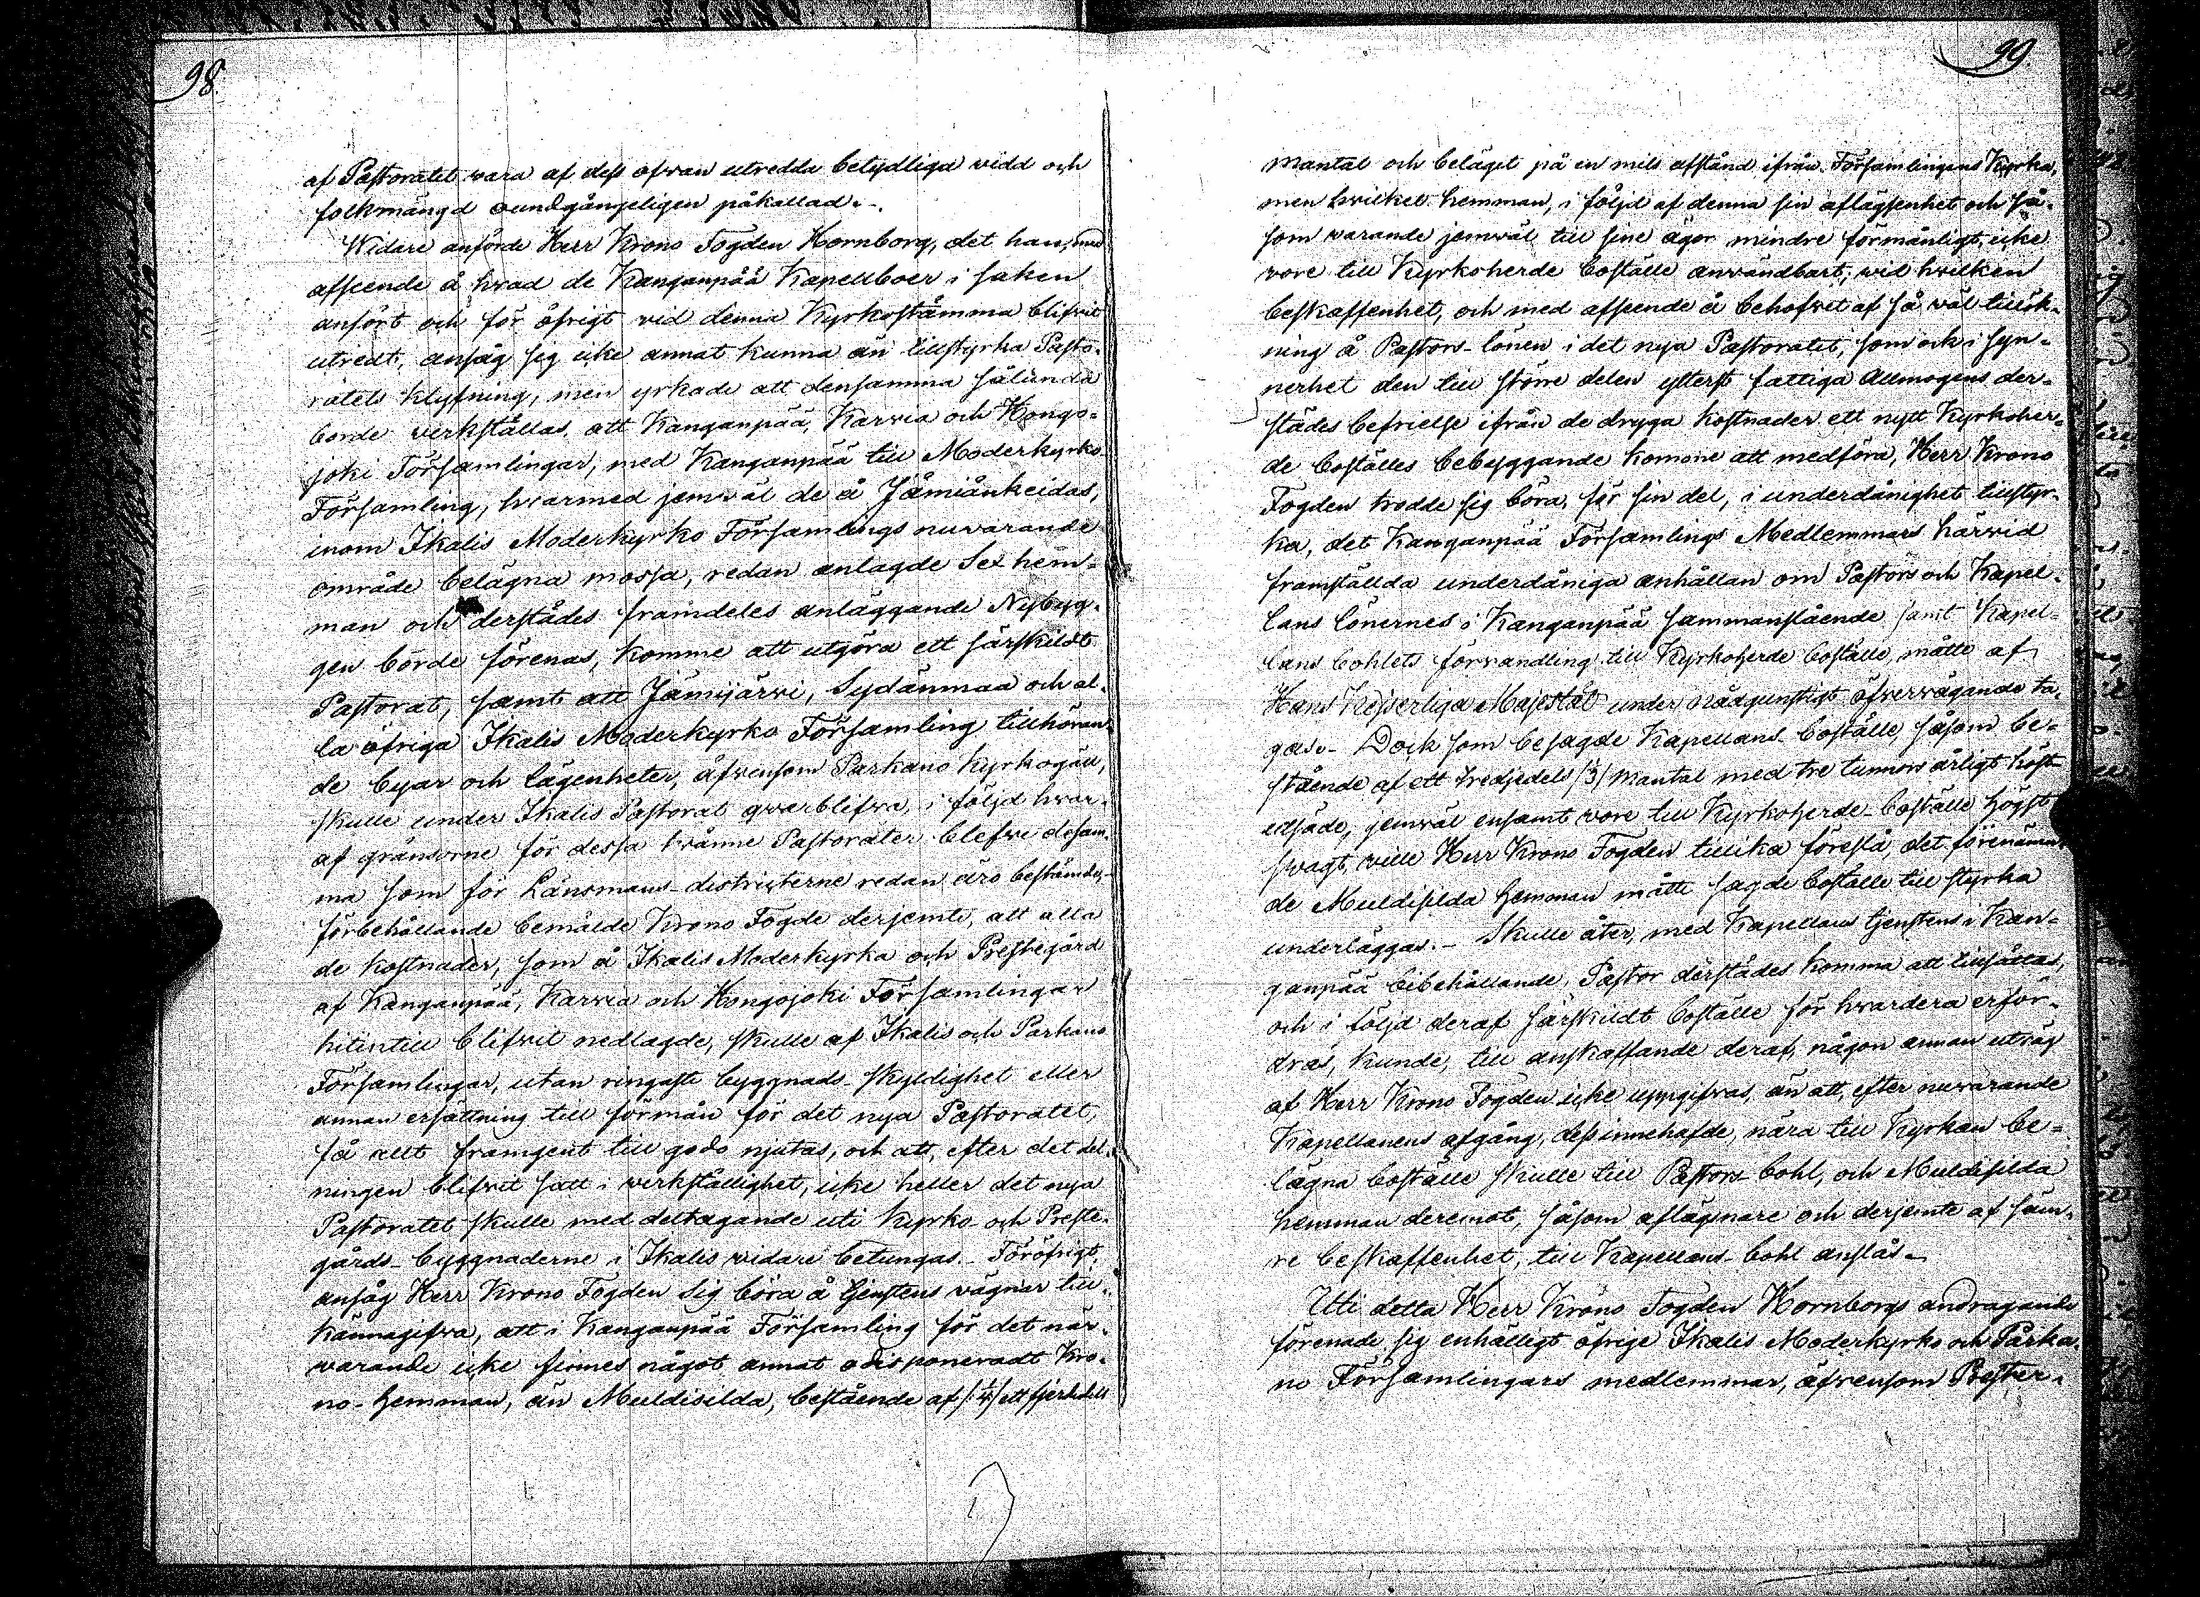 98
af Pastoratet vara af dess ofvan utredda betydliga vidd och
folkmängd oundgängeligen påkallad.-
Widare anförde Herr Krono Fogden Hornborg, det han, med
afseende å hvad de Kanganpää Kapellboer i saken
anfört och för öfrigt vid denna Kyrkostämma blifvit
utredt, ansåg sig icke annat kunna än tillstyrka Pasto-
ratets klyfning, men yrkade att densamma sålunda
borde verkställas, att Kanganpää, Karvia och Hongo-
joki Församlingar, med Kanganpää till Moderkyrko
Församling, hvarmed jemväl de å Jämiänkeidas,
inom Ikalis Moderkyrko Församlings nuvarande
område belägna mossa, redan anlagde Sex hem-
man och derstädes framdeles anläggande Nybyg-
gen borde förenas, komme att utgöra ett särskildt
Pastorat, samt att Jämijärvi, Sydänmaa och al-
la öfriga Ikalis Moderkyrko Församling tillhöran-
de byar och lägenheter, äfvensom Parkano Kyrkogäll,
skulle under Ikalis Pastorat qvarblifva, i följd hvar-
af gränsorne för dessa tvänne Pastorater blefve desam-
ma som för Länsmans-districterne redan äro bestämde,-
förbehållande bemälde Krono Fogde derjemte, att alla
de kostnader, som å Ikalis Moderkyrka och Prestegård
af Kanganpää, Karvia och Hongojoki Församlingar
hitintill blifvit nedlagde, skulle af Ikalis och Parkano
Församlingar, utan ringaste byggnads-skyldighet eller
annan ersättning till förmån för det nya Pastoratet,
få allt framgent till godo njutas, och att, efter det del-
ningen blifvit satt i verkställighet, icke heller det nya
Pastoratet skulle med deltagande uti Kyrko- och Preste-
gårds-byggnaderne i Ikalis vidare betungas.- Föröfrigt
ansåg Herr Krono Fogden sig böra å tjenstens vägnar till-
kännagifva, att i Kanganpää Församling för det när-
varande icke finnes något annat odisponeradt Kro-
no-hemman, än Muldisilda, bestående af /:1/4/ ett fjerdedels
99.
mantal och beläget på en mils afstånd ifrån Församlingens Kyrka,
men hvilket hemman, i följd af denna sin aflägsenhet och så-
som varande jemväl till sine ägor mindre förmånligt, icke
vore till Kyrkoherde boställe användbart; vid hvilken
beskaffenhet, och med afseende å behofvet af så väl tillök-
ning å Pastors-lönen i det nya Pastoratet, som ock i syn-
nerhet den till större delen ytterst fattiga Allmogens der-
städes befrielse ifrån de dryga kostnader ett nytt Kyrkoher-
de boställes bebyggande komme att medföra, Herr Krono
Fogden trodde sig böra, för sin del, i underdånighet tillstyr-
ka, det Kanganpää Församlings Medlemmars härvid
framställda underdåniga anhållan om Pastors och Kapel-
lans lönernes i Kanganpää sammanslående samt Kapel-
lans bohlets förvandling till Kyrkoherde boställe, måtte af
Hans Kejserliga Majestät under nådgunstigt öfvervägande ta-
gas.- Dock som besagde Kapellans-boställe, såsom be-
stående af ett tredjedels /1/3/ mantal med tre tunnors årligt höst-
utsäde, jemväl ensamt vore till Kyrkoherde-boställe högst
svagt, ville Herr Krono Fogden tillika föreslå, det förenämn-
de Muldisilda hemman måtte sagde boställe till styrka
underläggas.- Skulle åter, med Kapellans tjenstens i Kan-
ganpää bibehållande, Pastor derstädes komma att tillsättas,
och i följd deraf särskildt boställe för hvardera erfor-
dras, kunde, till anskaffande deraf, någon annan utväg
af Herr Krono Fogden icke uppgifvas, än att, efter nuvarande
Kapellanens afgång, dess innehafde, nära till Kyrkan be-
lägna boställe skulle till Pastors-bohl, och Muldisilda
hemman deremot, såsom aflägsnare och derjemte af säm-
re beskaffenhet, till Kapellans-bohl anslås.-
Uti detta Herr Krono Fogden Hornborgs andragande
förenade sig enhälligt öfrige Ikalis Moderkyrko och Parka-
no Församlingars medlemmar, äfvensom Prester-